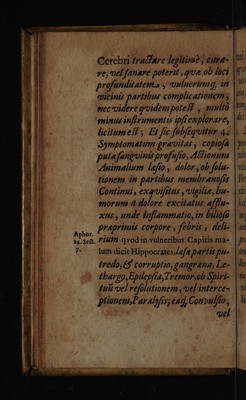 Cerebri tractare legitimè, cura-
re, vel sanare poterit, quæ ob loci
profunditatem, vulnerumq; in
vicinis partibus complicationem,
nec videre quidem potest, multò
minus instrumentis ipsis explorare,
licitum est; Et sic subsequitur 4.
Symptomatum gravitas, copiosa
puta sangvinis profusio, Actionum
Animalium læsio, dolor, ob solu-
tionem in partibus membranosis
Continui, exqvisitus, vigilia, hu-
morum à dolore excitatus afflu-
xus, unde Inflammatio, in bilioso
præprimis corpore, febris, deli-
rium qvod in vulneribus Capitis ma-
Aphor.
14. Sect.
7.
lum dicit Hippocrates. læsæ partis pu-
tredo, & corruptio, gangræna, Le-
thargo, Epilepsia, Tremor, ob Spiri-
tuū vel resolutionem, vel interce-
ptionem, Paralysis; eaq; Convulsio,
vel